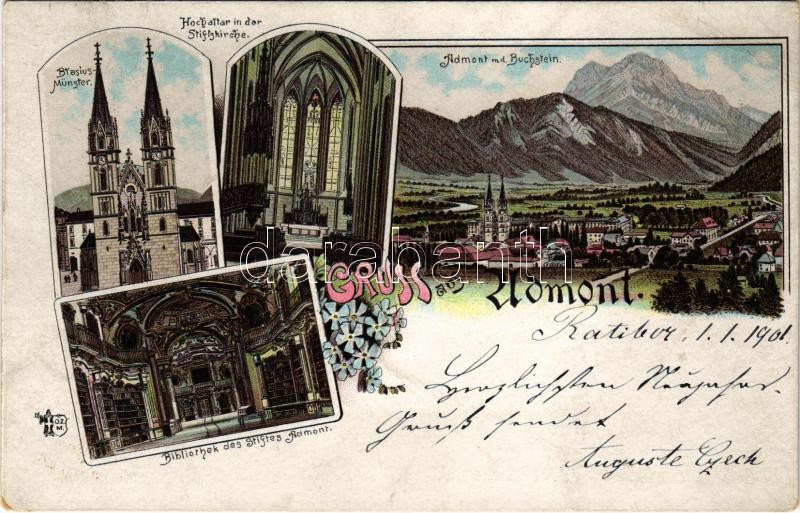 Hochaltar in der
Stiftskirche.
Blasius-
Münster.
Admont m.d. Buchstein.
GRUSS aus Admont.
Bibliothek des Stiftes Admont.
O.Z.
M.
darabanth
Ratibor, 1.1.1901.
Herzlichsten Neujahrs-
Gruß sendet
Auguste Czech